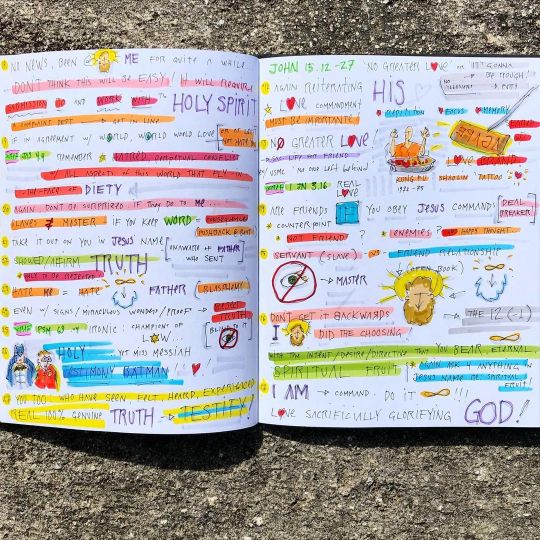 NO NEWS, BEEN @ ME FOR QUITE A WHILE
DON'T THINK THIS WILL BE EASY! IT WILL REQUIRE
SUBMISSION TO AND WORK WITH THE HOLY SPIRIT
COMPLAINT DEPT → GET IN LINE
IF IN AGREEMENT W/ WORLD, WORLD WOULD LOVE
REMEMBER HATRED, PERPETUAL CONFLICT
ALL ASPECTS OF THIS WORLD THAT FLY IN
THE FACE OF DIETY
AGAIN DON'T BE SURPRISED IF THEY DO TO ME
SLAVES MASTER IF YOU KEEP WORD
TAKE IT OUT ON YOU IN JESUS NAME
UNAWARE OF FATHER WHO SENT
SHOWED/AFFIRM TRUTH
ONLY TO BE REJECTED
HATE ME = HATE FATHER BLASPHEMY
EVEN W/ SIGNS/MIRACULOUS WONDERS/PROOF → REJECT TRUTH
PSM 69.4 IRONIC: CHAMPIONS OF
BLIND TO IT
HOLY YET MISS MESSIAH
TESTIMONY BATMAN!!!
YOU TOO WHO HAVE SEEN, FELT, HEARD, EXPERIENCED
REAL 100% GENUINE TRUTH → TESTIFY!
JOHN 15.12-27 "NO GREATER LOVE"
GONNA BE TOUGH!
AGAIN REITERATING HIS
LOVE COMMANDMENT
REPETITION FOCUS MEMORY
MUST BE IMPORTANTE
NO GREATER LOVE!
LOVE BRAND
KUNG FU SHAOLIN TATTOO
1972-75
1 JN 3.16 REAL LOVE
ARE FRIENDS IF YOU OBEY JESUS COMMANDS
DEAL BREAKER
COUNTERPOINT
NOT FRIEND? ENEMIES HAPPY THOUGHT
SERVANT (SLAVE) VS FRIEND RELATIONSHIP
(OPEN BOOK)
→ MASTER
DON'T GET IT BACKWARDS
→ THE 12 (-1)
I DID THE CHOOSING!
WITH AN INTENT/DESIRE/DIRECTIVE THAT YOU BEAR ETERNAL
SPIRITUAL FRUIT
AGAIN ASK 4 ANYTHING IN
JESUS NAME RE: SPIRITUAL FRUIT
I AM → COMMAND. DO IT !!!
LOVE SACRIFICIALLY GLORIFYING GOD!